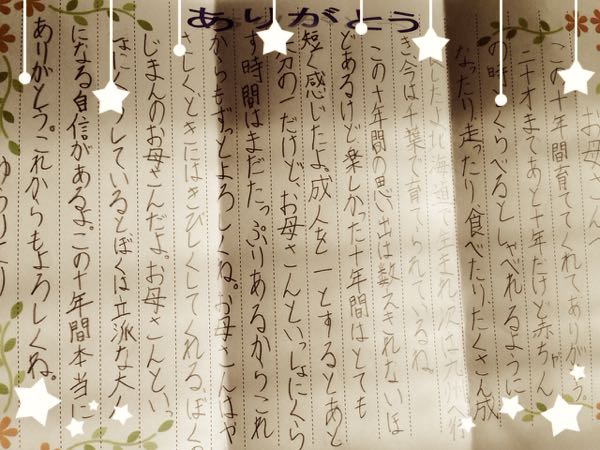 ありがとう
お母さんへ
この十年間育ててくれてありがとう。
二十才まであと十年だけど赤ちゃん
の時とくらべるとしゃべれるように
なったり走ったり、食べたりたくさん成
したよ。北海道で生まれ次に九州へ行
き、今は千葉で育てられているね。
この十年間の思い出は数えきれないほ
どあるけど楽しかった十年間はとても
短く感じたよ。成人を一とするとあと
分の一だけど、お母さんといっしょにくら
す時間はまだたっぷりあるからこれ
からもずっとよろしくね。お母さんはや
さしく、ときにはきびしくしてくれる、ぼくの
じまんのお母さんだよ。お母さんといっ
しているとぼくは立派な大人
になる自信があるよ。この十年間本当に
ありがとう。これからもよろしくね。